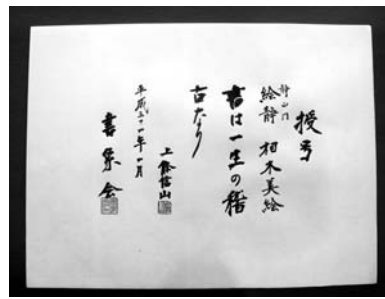 授号
静山門
絵静 柏木美絵
書は一生の稽
古たり
上條信山
平成二十一年一月
書象会